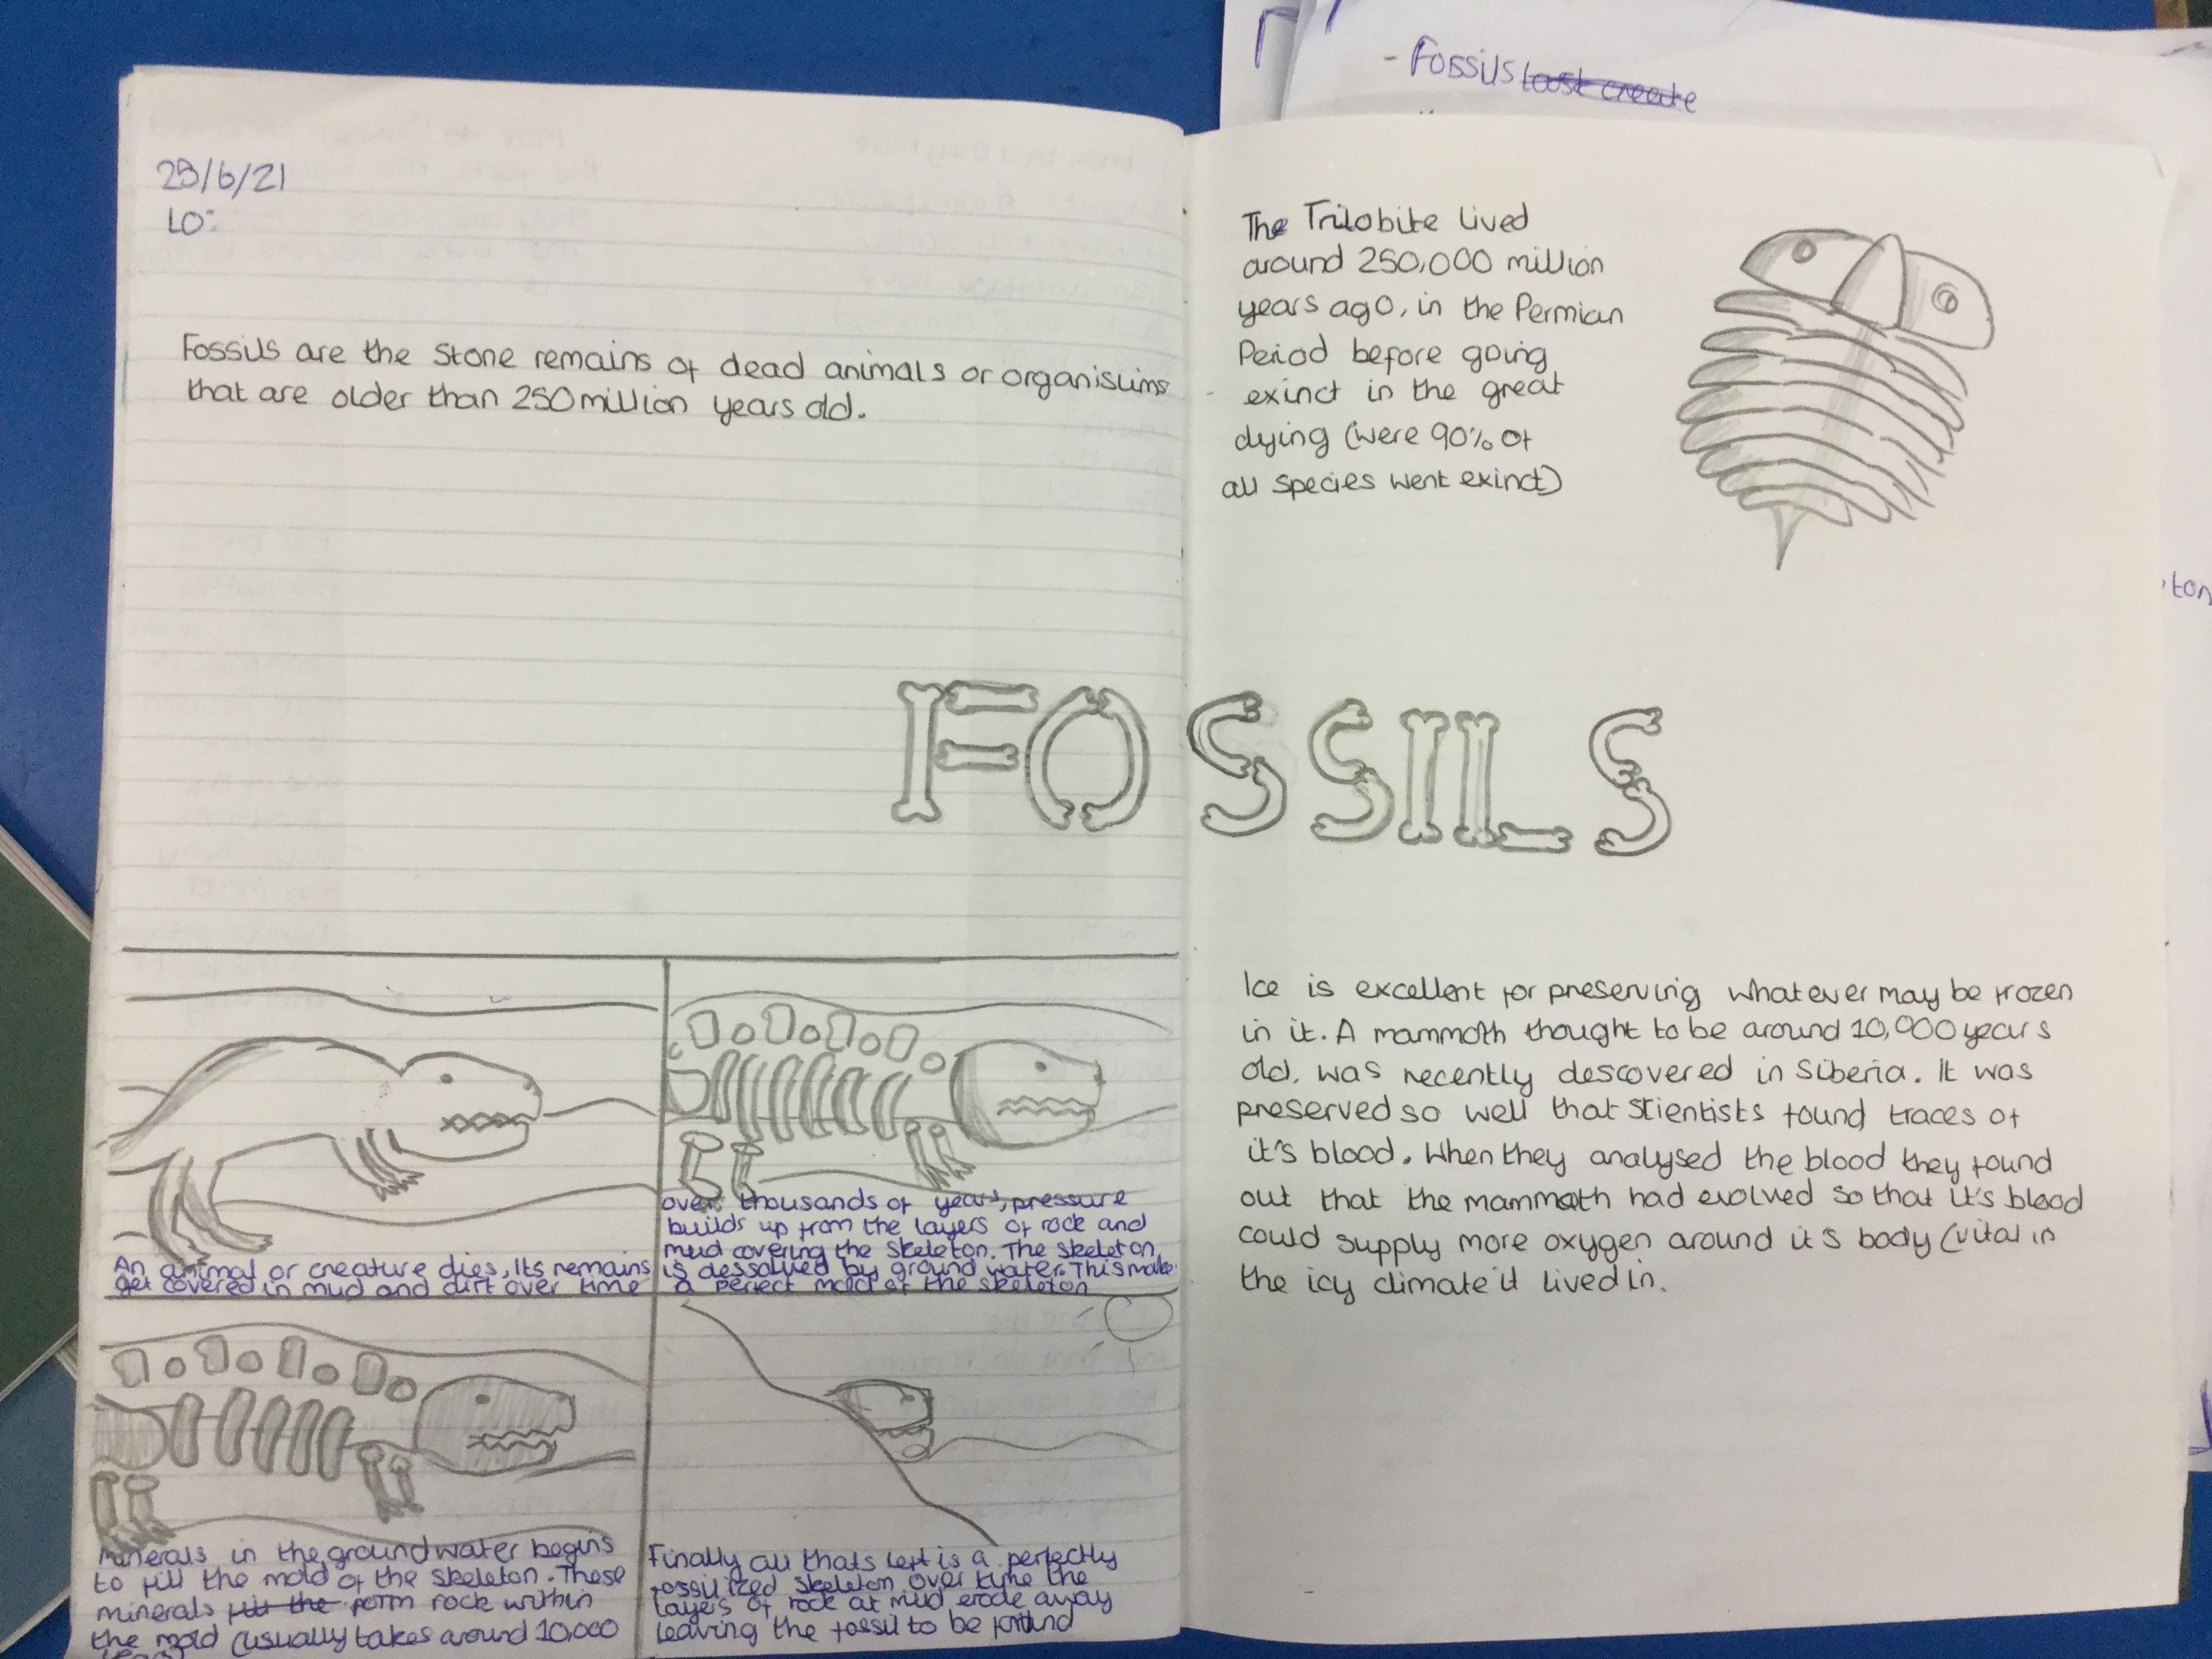 - Fossils last create
23/6/21
LO:
Fossils are the stone remains of dead animals or organisims
that are older than 250 million years old.
The Trilobite lived
around 250,000 million
years ago, in the Permian
Period before going
exinct in the great
dying (were 90% of
all species went exinct)
FOSSILS
An animal or creature dies, Its remains
get covered in mud and dirt over time
over thousands of years, pressure
builds up from the layers of rock and
mud covering the skeleton. The skeleton
is dessolved by ground water. This make
a perfect mold of the skeleton
Minerals in the groundwater begins
to fill the mold of the skeleton. These
minerals fill the form rock within
the mold (usually takes around 10,000
years)
Finally all thats left is a perfectly
fossilized skeleton over time the
layers of rock at mud erode away
leaving the fossil to be found
Ice is excellent for preserving whatever may be frozen
in it. A mammoth thought to be around 10,000 years
old, was recently descovered in Siberia. It was
preserved so well that scientists found traces of
it's blood. When they analysed the blood they found
out that the mammoth had evolved so that it's blood
could supply more oxygen around it's body (vital in
the icy climate it lived in.